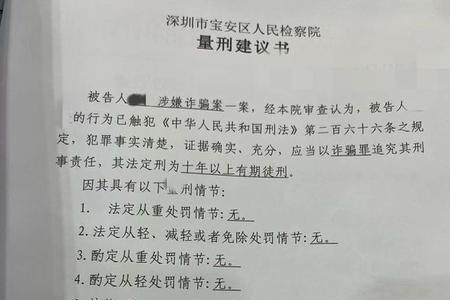 深圳市宝安区人民检察院
量刑建议书
被告人 涉嫌诈骗案一案，经本院审查认为，被告人
的行为已触犯《中华人民共和国刑法》第二百六十六条之规
定，犯罪事实清楚，证据确实、充分，应当以诈骗罪追究其刑
事责任，其法定刑为十年以上有期徒刑。
因其具有以下量刑情节：
1. 法定从重处罚情节：无。
2. 法定从轻、减轻或者免除处罚情节：无。
3. 酌定从重处罚情节：无。
4. 酌定从轻处罚情节：无。